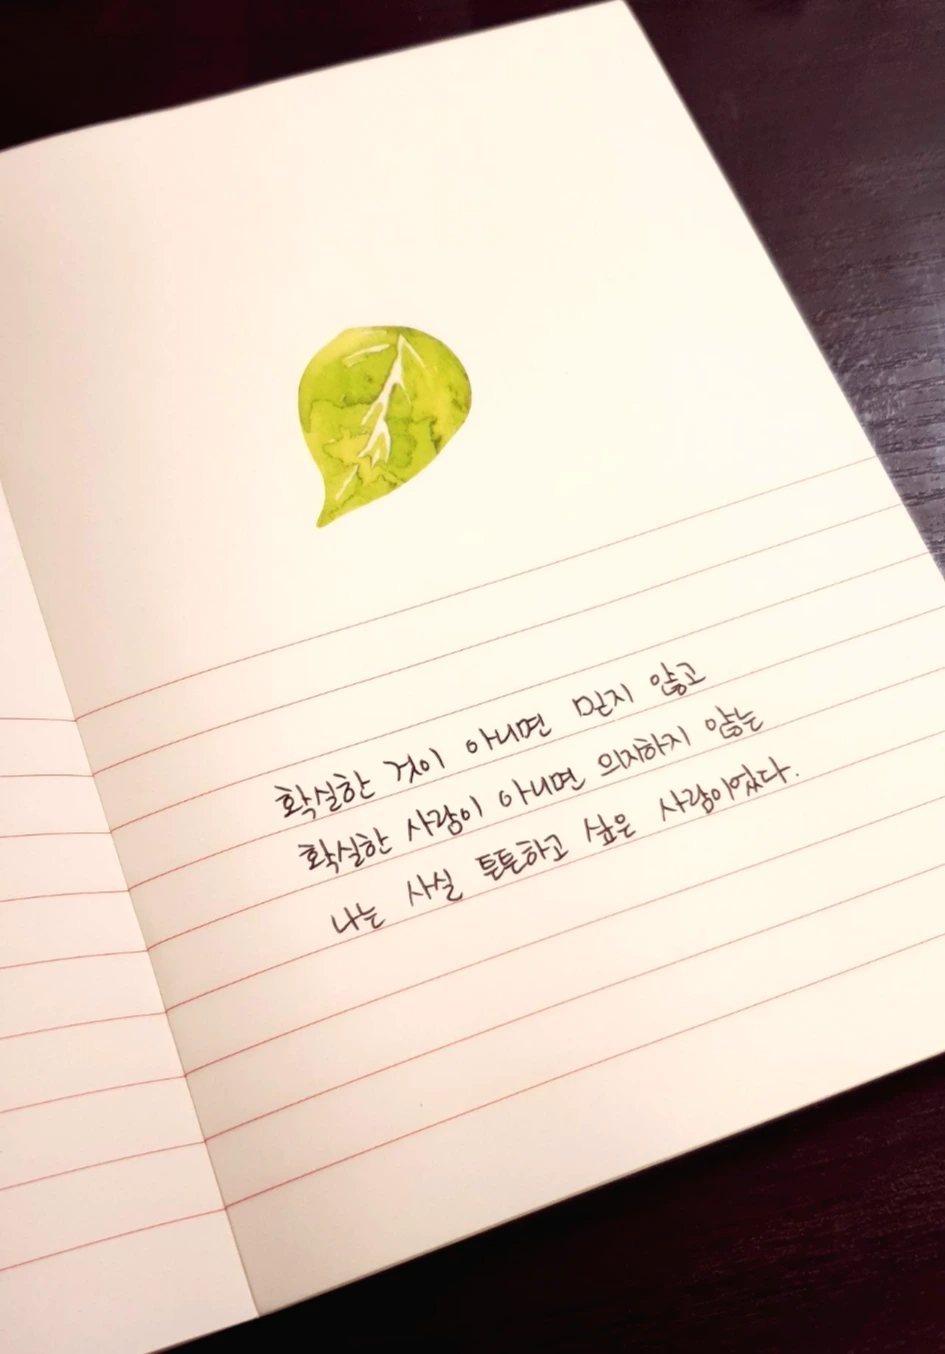 확실한 것이 아니면 믿지 않고
확실한 사랑이 아니면 의지하지 않는
나는 사실 튼튼하고 싶은 사람이었다.